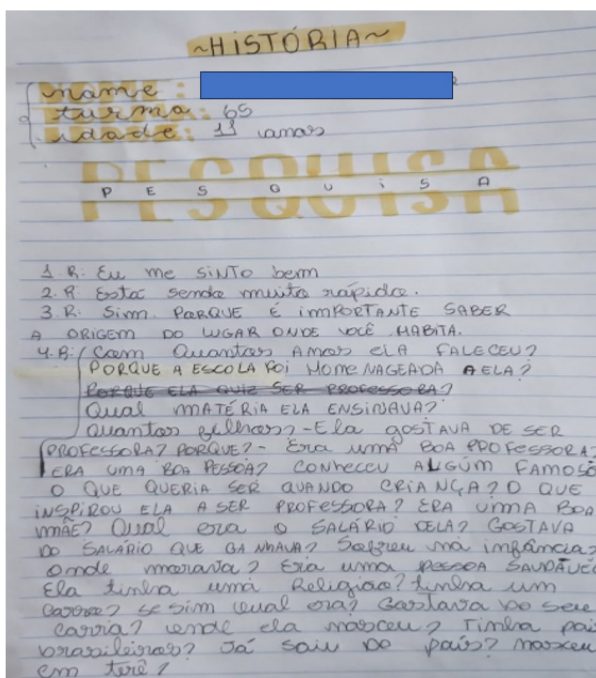 ~HISTÓRIA~
nome:
turma: 65
idade: 11 anos
PESQUISA
1. R: Eu me SiNTo bem
2. R: Está sendo muito rápido.
3. R: Sim. PORQUE É iMPORTANTE SABER
A ORIGEM DO LUGAR ONDE VOCÊ HABITA.
4. R: Com Quantos Anos elA FALECEU?
PORQUE A ESCOLA FOI HOMENAGEADA A ELA?
PORQUE ELA QUIZ SER PROFESSORA?
Qual MATÉRIA ELA ENSINAVA?
Quantos filhos? - Ela goSTAVA DE SER
PROFESSORA? PORQUE? - Era umA BOA PROFESSORA?
ERA UMA BOA PESSOA? CONHECEU ALGUM FAMOSO
O QUE QUERIA SER QUANDO CRIANÇA? O QUE
INSPIROU ELA A SER PROFESSORA? ERA UMA BOA
MÃE? Qual era O SALÁRIO DELA? GOSTAVA
DO SALÁRIO QUE GANHAVA? Sofreu na infância?
Onde morava? Era uma PESSOA SAUDÁVEL
Ela tinha uma Religião? tinha um
carro? se sim qual era? Gostava do seu
carro? onde ela nasceu? Tinha pais
brasileiros? Já saiu DO país? nasceu
em terê?